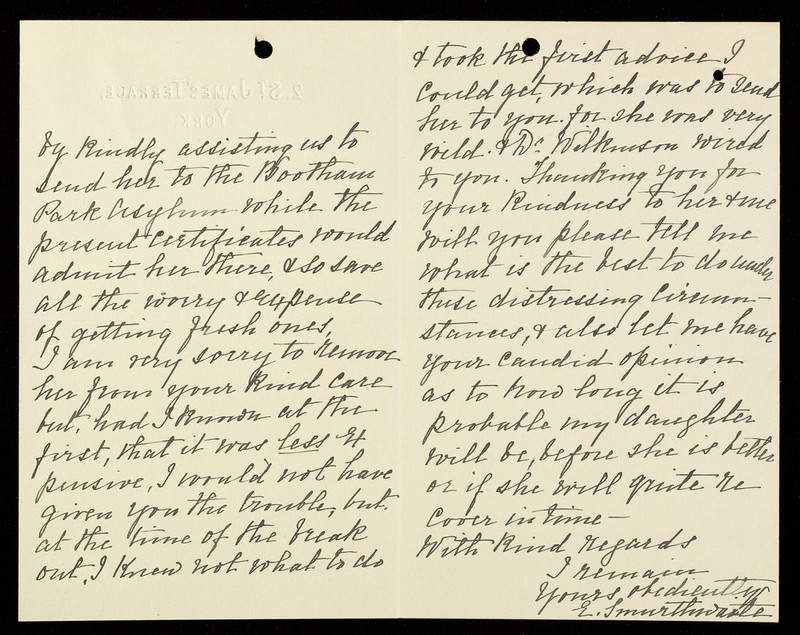 2. St James' Terrace,
York
by kindly assisting us to
send her to the Bootham
Park Asylum while the
present certificates would
admit her there, & so save
all the worry & expense
of getting fresh ones,
I am very sorry to remove
her from your kind care
but, had I known at the
first, that it was less ex
pensive, I would not have
given you the trouble, but
at the time of the break
out, I knew not what to do
& took the first advice I
could get, which was to send
her to you. for she was very
wild. & Dr. Wilkinson wired
to you. Thanking you for
your kindness to her & me
will you please tell me
what is the best to do under
these distressing circum-
stances, & also let me have
your candid opinion
as to how long it is
probable my daughter
will be, before she is better
or if she will quite re
cover in time -
With kind regards
I remain
Yours obediently
E. Smurthwaite